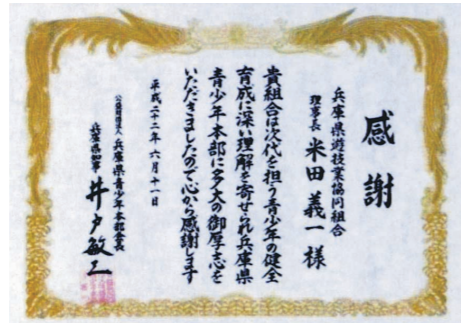 感謝
兵庫県遊技業協同組合
理事長 米田義一様
貴組合は次代を担う青少年の健全
育成に深い理解を寄せられ兵庫県
青少年本部に多大の御厚志を
いただきましたので心から感謝します
平成二十二年六月十一日
公益財団法人 兵庫県青少年本部会長
兵庫県知事 井戸敏三